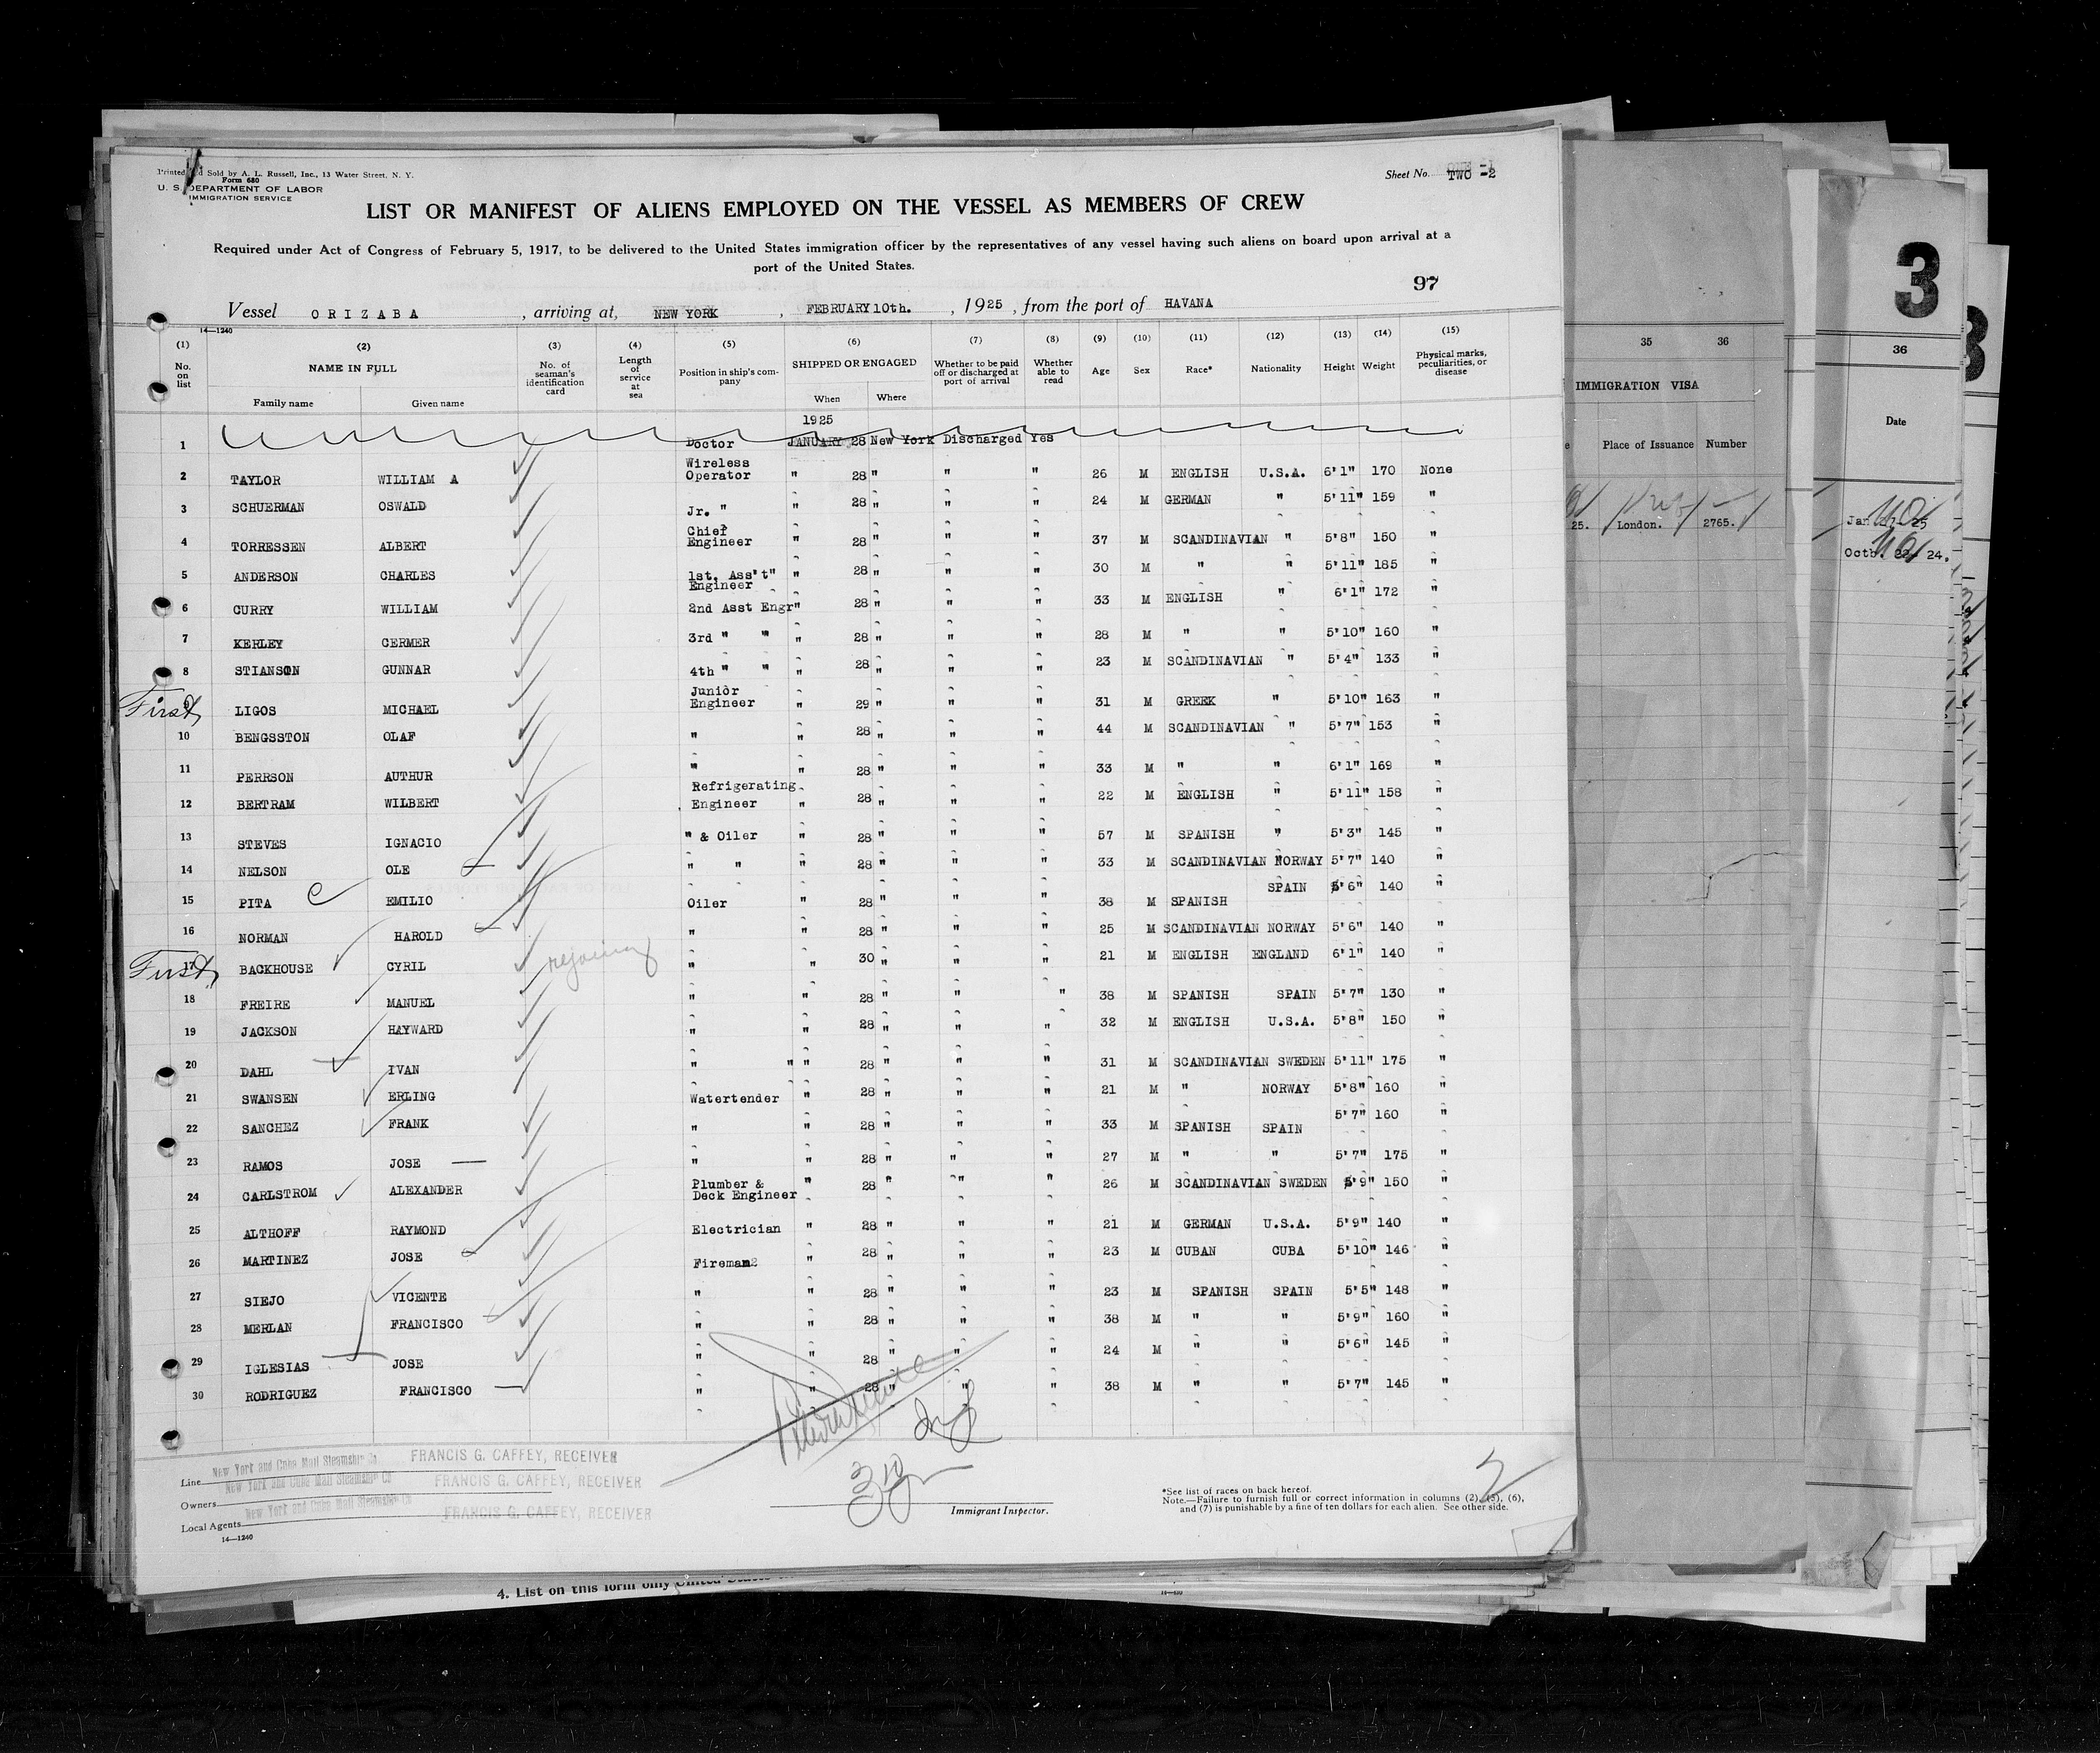 Printed and Sold by A. L. Russell, Inc., 13 Water Street, N. Y.
Form 680
U. S. DEPARTMENT OF LABOR
IMMIGRATION SERVICE
Sheet No. TWO -2
LIST OR MANIFEST OF ALIENS EMPLOYED ON THE VESSEL AS MEMBERS OF CREW
Required under Act of Congress of February 5, 1917, to be delivered to the United States immigration officer by the representatives of any vessel having such aliens on board upon arrival at a
port of the United States.
97
Vessel ORIZABA, arriving at, NEW YORK, FEBRUARY 10th., 1925, from the port of HAVANA
14—1240
(1) (2) (3) (4) (5) (6) (7) (8) (9) (10) (11) (12) (13) (14) (15)
No. on list NAME IN FULL No. of seaman's identification card Length of service at sea Position in ship's company SHIPPED OR ENGAGED Whether to be paid off or discharged at port of arrival Whether able to read Age Sex Race* Nationality Height Weight Physical marks, peculiarities, or disease
Family name Given name When Where
1925
1 Doctor JANUARY 28 New York Discharged Yes
2 TAYLOR WILLIAM A Wireless Operator " 28 " " " 26 M ENGLISH U.S.A. 6'1" 170 None
3 SCHUERMAN OSWALD Jr. " " 28 " " " 24 M GERMAN " 5'11" 159 "
4 TORRESSEN ALBERT Chief Engineer " 28 " " " 37 M SCANDINAVIAN " 5'8" 150 "
5 ANDERSON CHARLES 1st. Ass't" Engineer " 28 " " " 30 M " " 5'11" 185 "
6 CURRY WILLIAM 2nd Asst Engr" 28 " " " 33 M ENGLISH " 6'1" 172 "
7 KERLEY GERMER 3rd " " " 28 " " " 28 M " " 5'10" 160 "
8 STIANSON GUNNAR 4th " " " 28 " " " 23 M SCANDINAVIAN " 5'4" 133 "
First 9 LIGOS MICHAEL Junior Engineer " 29 " " " 31 M GREEK " 5'10" 163 "
10 BENGSSTON OLAF " " 28 " " " 44 M SCANDINAVIAN " 5'7" 153 "
11 PERRSON AUTHUR " " 28 " " " 33 M " " 6'1" 169 "
12 BERTRAM WILBERT Refrigerating Engineer " 28 " " " 22 M ENGLISH " 5'11" 158 "
13 STEVES IGNACIO " & Oiler " 28 " " " 57 M SPANISH " 5'3" 145 "
14 NELSON OLE " " " 28 " " " 33 M SCANDINAVIAN NORWAY 5'7" 140 "
15 PITA EMILIO Oiler " 28 " " " 38 M SPANISH SPAIN 5'6" 140 "
16 NORMAN HAROLD " " 28 " " " 25 M SCANDINAVIAN NORWAY 5'6" 140 "
First 17 BACKHOUSE CYRIL rejoining " " 30 " " " 21 M ENGLISH ENGLAND 6'1" 140 "
18 FREIRE MANUEL " " 28 " " " 38 M SPANISH SPAIN 5'7" 130 "
19 JACKSON HAYWARD " " 28 " " " 32 M ENGLISH U.S.A. 5'8" 150 "
20 DAHL IVAN " " " 28 " " " 31 M SCANDINAVIAN SWEDEN 5'11" 175 "
21 SWANSEN ERLING Watertender " 28 " " " 21 M " NORWAY 5'8" 160 "
22 SANCHEZ FRANK " " 28 " " " 33 M SPANISH SPAIN 5'7" 160 "
23 RAMOS JOSE " " 28 " " " 27 M " " 5'7" 175 "
24 CARLSTROM ALEXANDER Plumber & Deck Engineer " 28 " " " 26 M SCANDINAVIAN SWEDEN 5'9" 150 "
25 ALTHOFF RAYMOND Electrician " 28 " " " 21 M GERMAN U.S.A. 5'9" 140 "
26 MARTINEZ JOSE Fireman " 28 " " " 23 M CUBAN CUBA 5'10" 146 "
27 SIEJO VICENTE " " 28 " " " 23 M SPANISH SPAIN 5'5" 148 "
28 MERLAN FRANCISCO " " 28 " " " 38 M " " 5'9" 160 "
29 IGLESIAS JOSE " " 28 " " 24 M " " 5'6" 145 "
30 RODRIGUEZ FRANCISCO " " 28 " " " 38 M " " 5'7" 145 "
Line New York and Cuba Mail Steamship Co FRANCIS G. CAFFEY, RECEIVER
Owners New York and Cuba Mail Steamship Co FRANCIS G. CAFFEY, RECEIVER
Local Agents New York and Cuba Mail Steamship Co FRANCIS G. CAFFEY, RECEIVER
14—1240
Immigrant Inspector.
*See list of races on back hereof.
Note.—Failure to furnish full or correct information in columns (2), (3), (6),
and (7) is punishable by a fine of ten dollars for each alien. See other side.
2
4. List on this form only United States
35 36
IMMIGRATION VISA
Place of Issuance Number
25. London. 2765.
3
36
Date
Jan 25
Octb. 22 24.